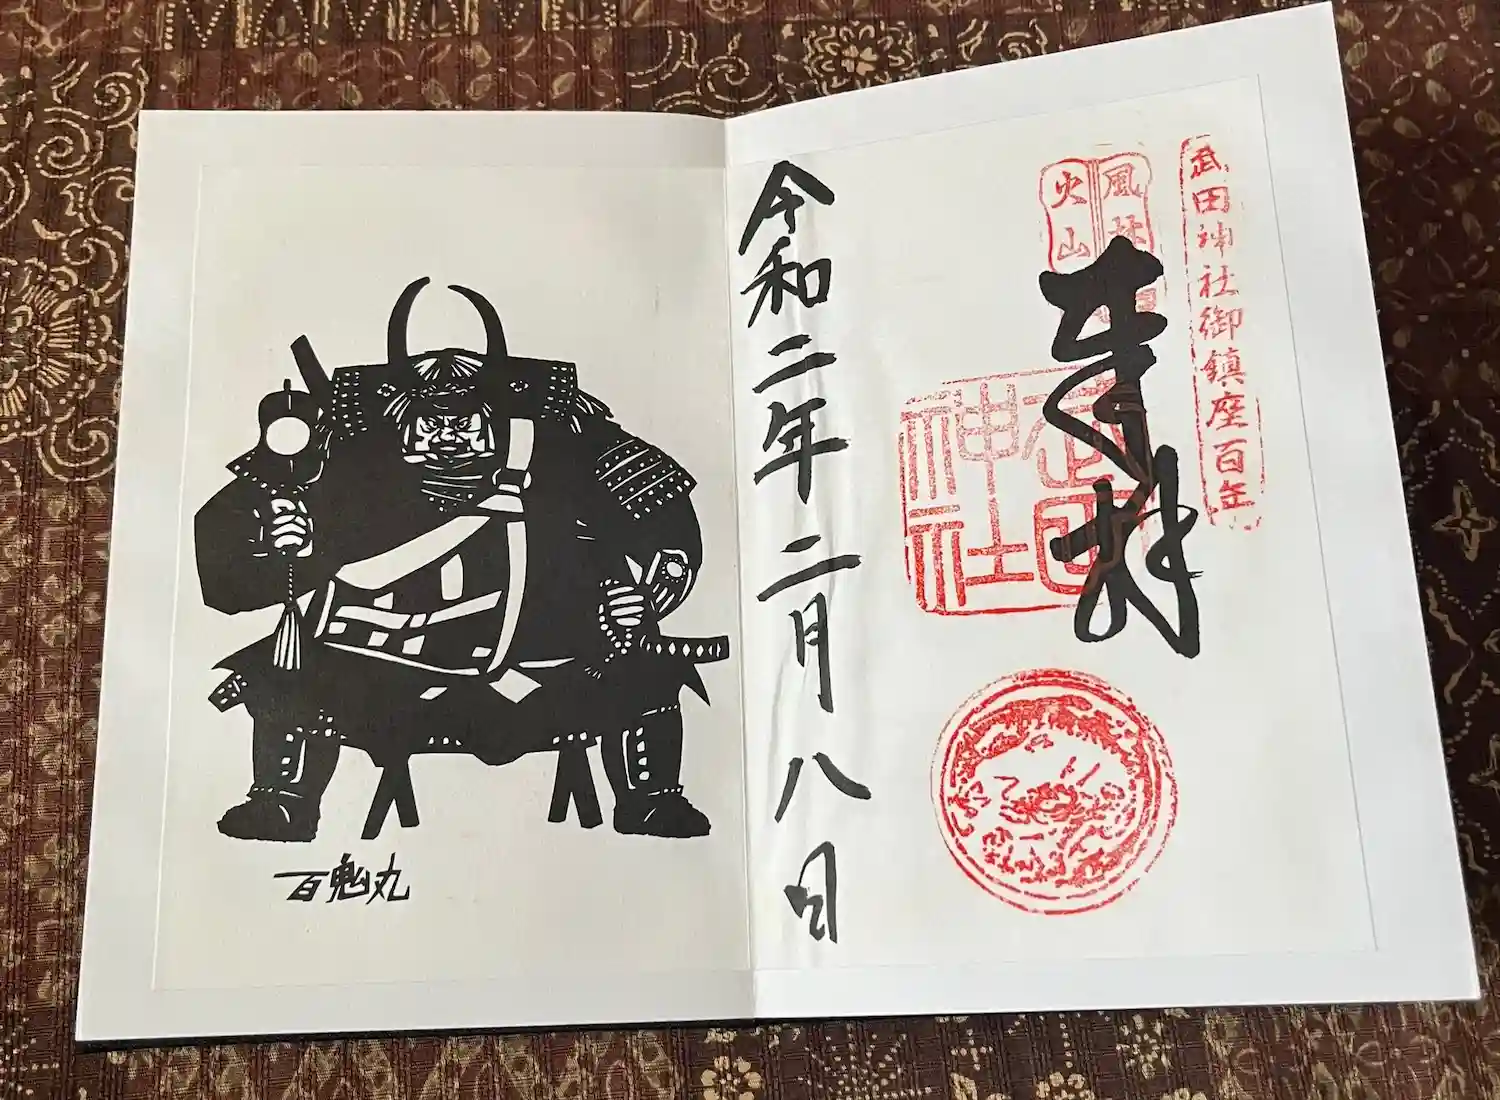 武田神社御鎮座百年
風林
火山
奉拝
武田
神社
令和二年二月八日
百鬼丸